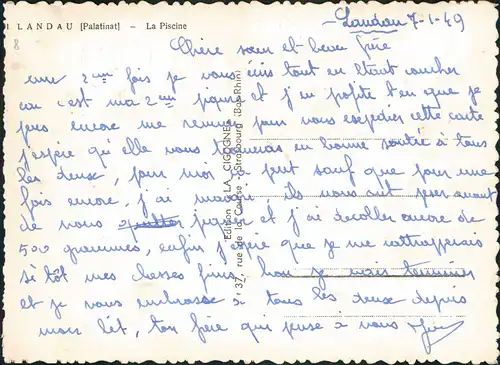 LANDAU [Palatinat] - La Piscine
Landau 7-1-49
8
Chère sœur et beau frère
une 2em fois je vous écris tout en étant coucher
car c'est ma 2em piqure et j'en profite bien que je
puis encore me remuer pour vous expedier cette carte
j'espère qu'elle vous trouvera en bonne santé à tous
les deux, pour moi ça peut sauf que pour une
fois encore, j'ai maigri, ils nous ont peser avant
de nous piquer et j'ai décoller encore de
500 grammes, enfin j'espère que je me rattraperais
si tôt mes classes finis, bon je vais terminer
et je vous embrasse à tous les deux depuis
mon lit, ton frère qui pense à vous
Edition "LA CIGOGNE"
37, rue de la Course - Strasbourg (Bas-Rhin)